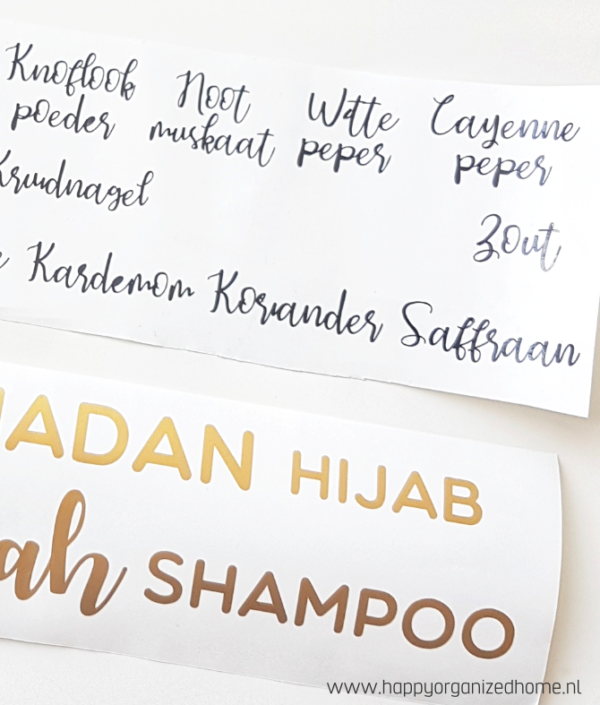 Knoflook Noot Witte Cayenne
poeder muskaat peper peper
Kruidnagel Zout
Kardemom Koriander Saffraan
ADAN HIJAB
ah SHAMPOO
www.happyorganizedhome.nl